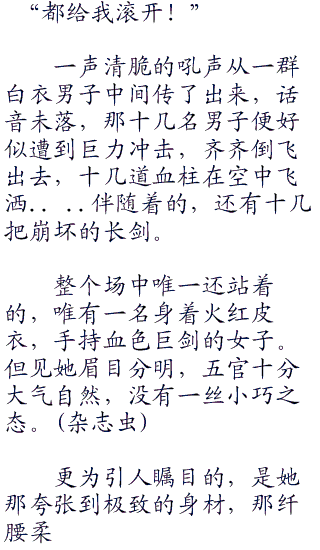 “都给我滚开！”
一声清脆的吼声从一群
白衣男子中间传了出来，话
音未落，那十几名男子便好
似遭到巨力冲击，齐齐倒飞
出去，十几道血柱在空中飞
洒．．．．伴随着的，还有十几
把崩坏的长剑。
整个场中唯一还站着
的，唯有一名身着火红皮
衣，手持血色巨剑的女子。
但见她眉目分明，五官十分
大气自然，没有一丝小巧之
态。(杂志虫)
更为引人瞩目的，是她
那夸张到极致的身材，那纤
腰柔